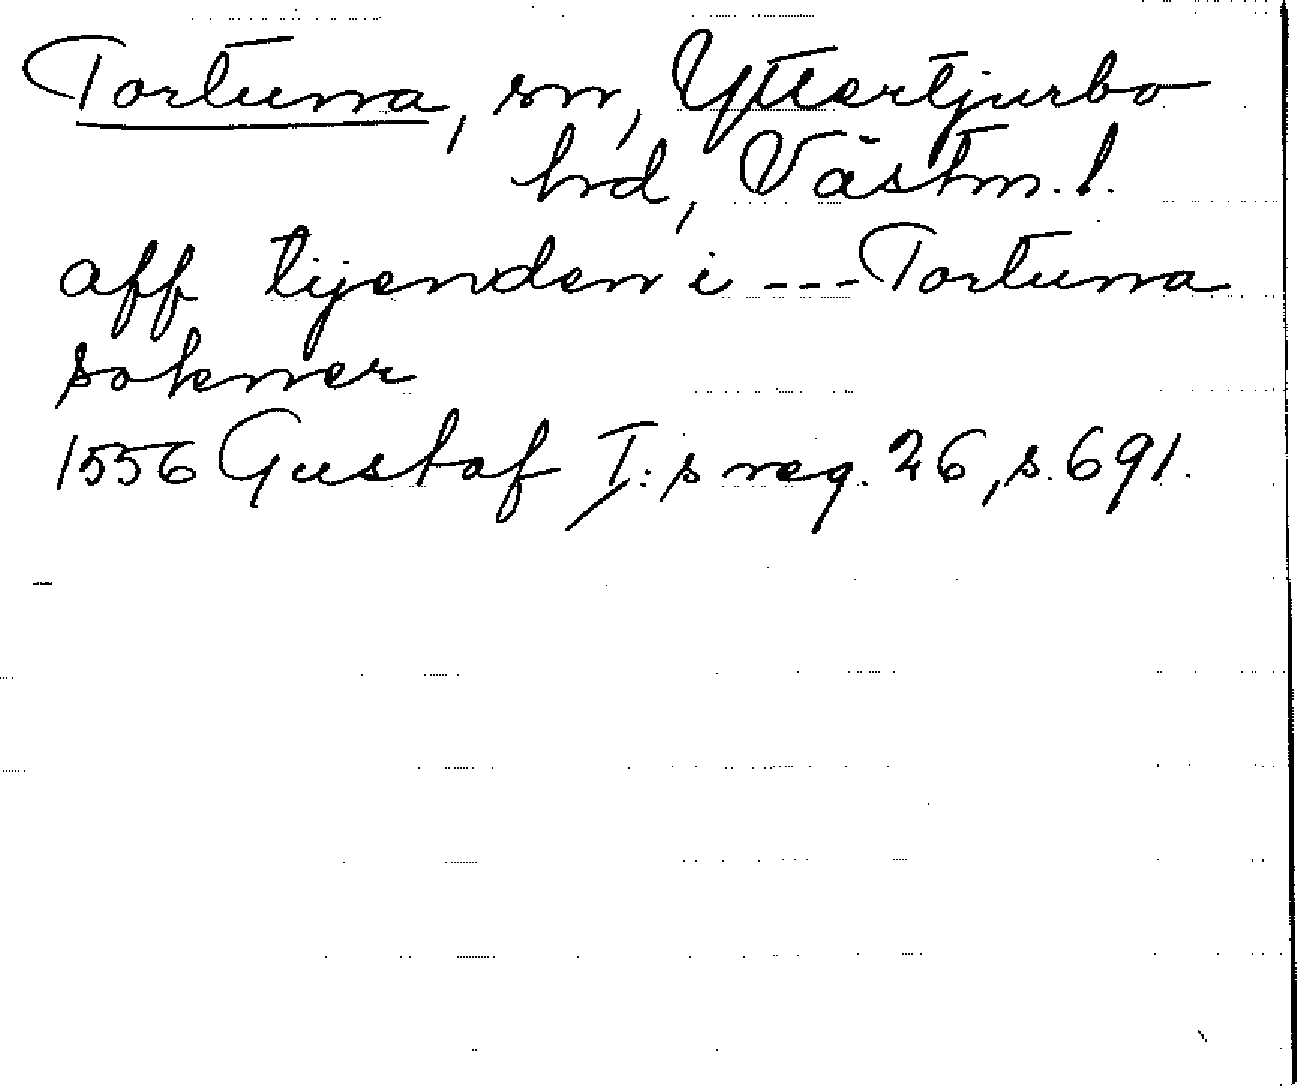 Tortuna, sn, Yttertjurbo
hrd, Västm. l.
aff tijenden i --- Tortuna
sokner
1556 Gustaf I:s reg. 26, s. 691.